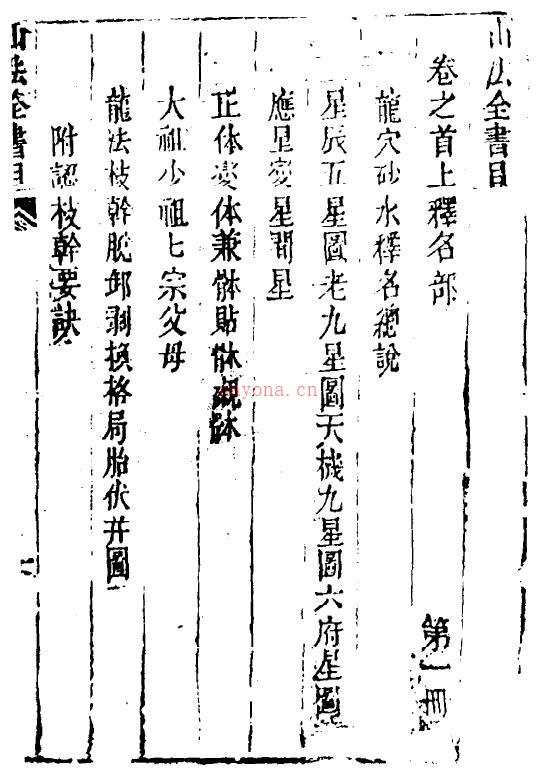 山法全書目
卷之首上釋名部
第一冊
龍穴砂水釋名總說
星辰五星圖老九星圖天機九星圖六府星圖
應星變星間星
正体变体兼体貼体
大祖少祖七宗父母
龍法枝幹脫卸剥换格局胎伏并圖
附認枝幹要訣
山法全書目
kuyona.cn